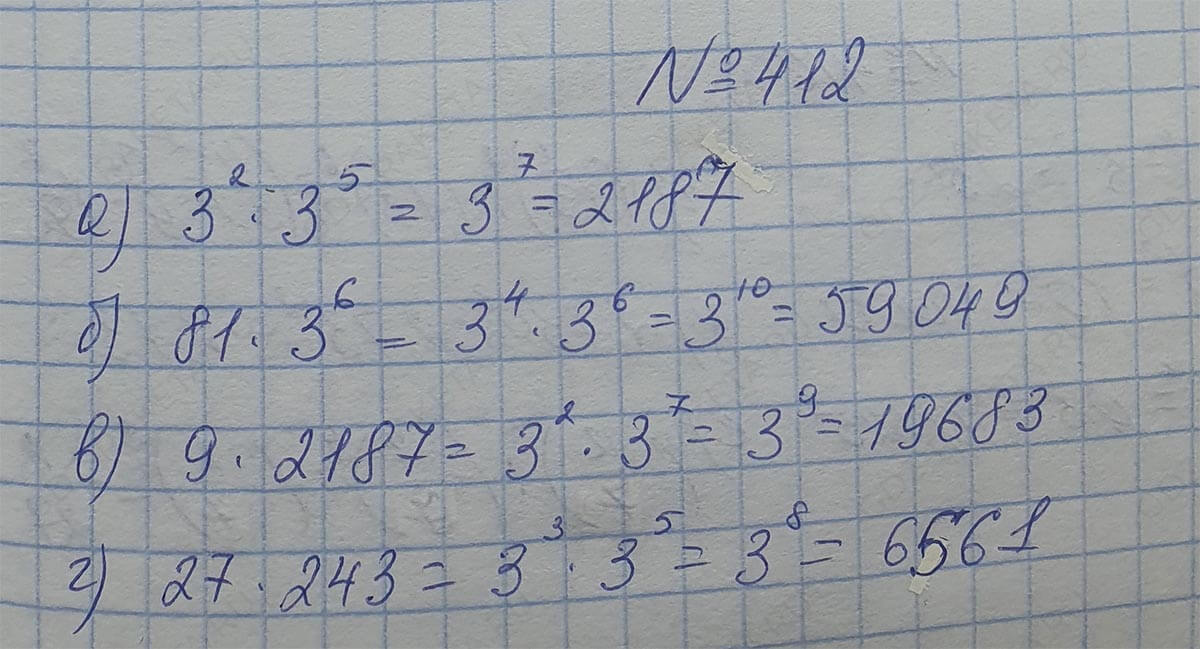 № 412
а) 3² · 3⁵ = 3⁷ = 2187
б) 81 · 3⁶ = 3⁴ · 3⁶ = 3¹⁰ = 59 049
в) 9 · 2187 = 3² · 3⁷ = 3⁹ = 19683
г) 27 · 243 = 3³ · 3⁵ = 3⁸ = 6561